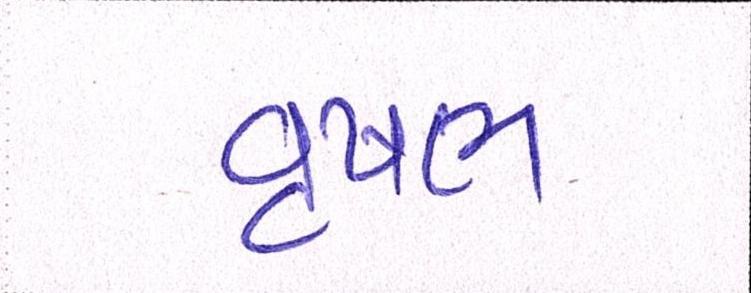 વૃષભ